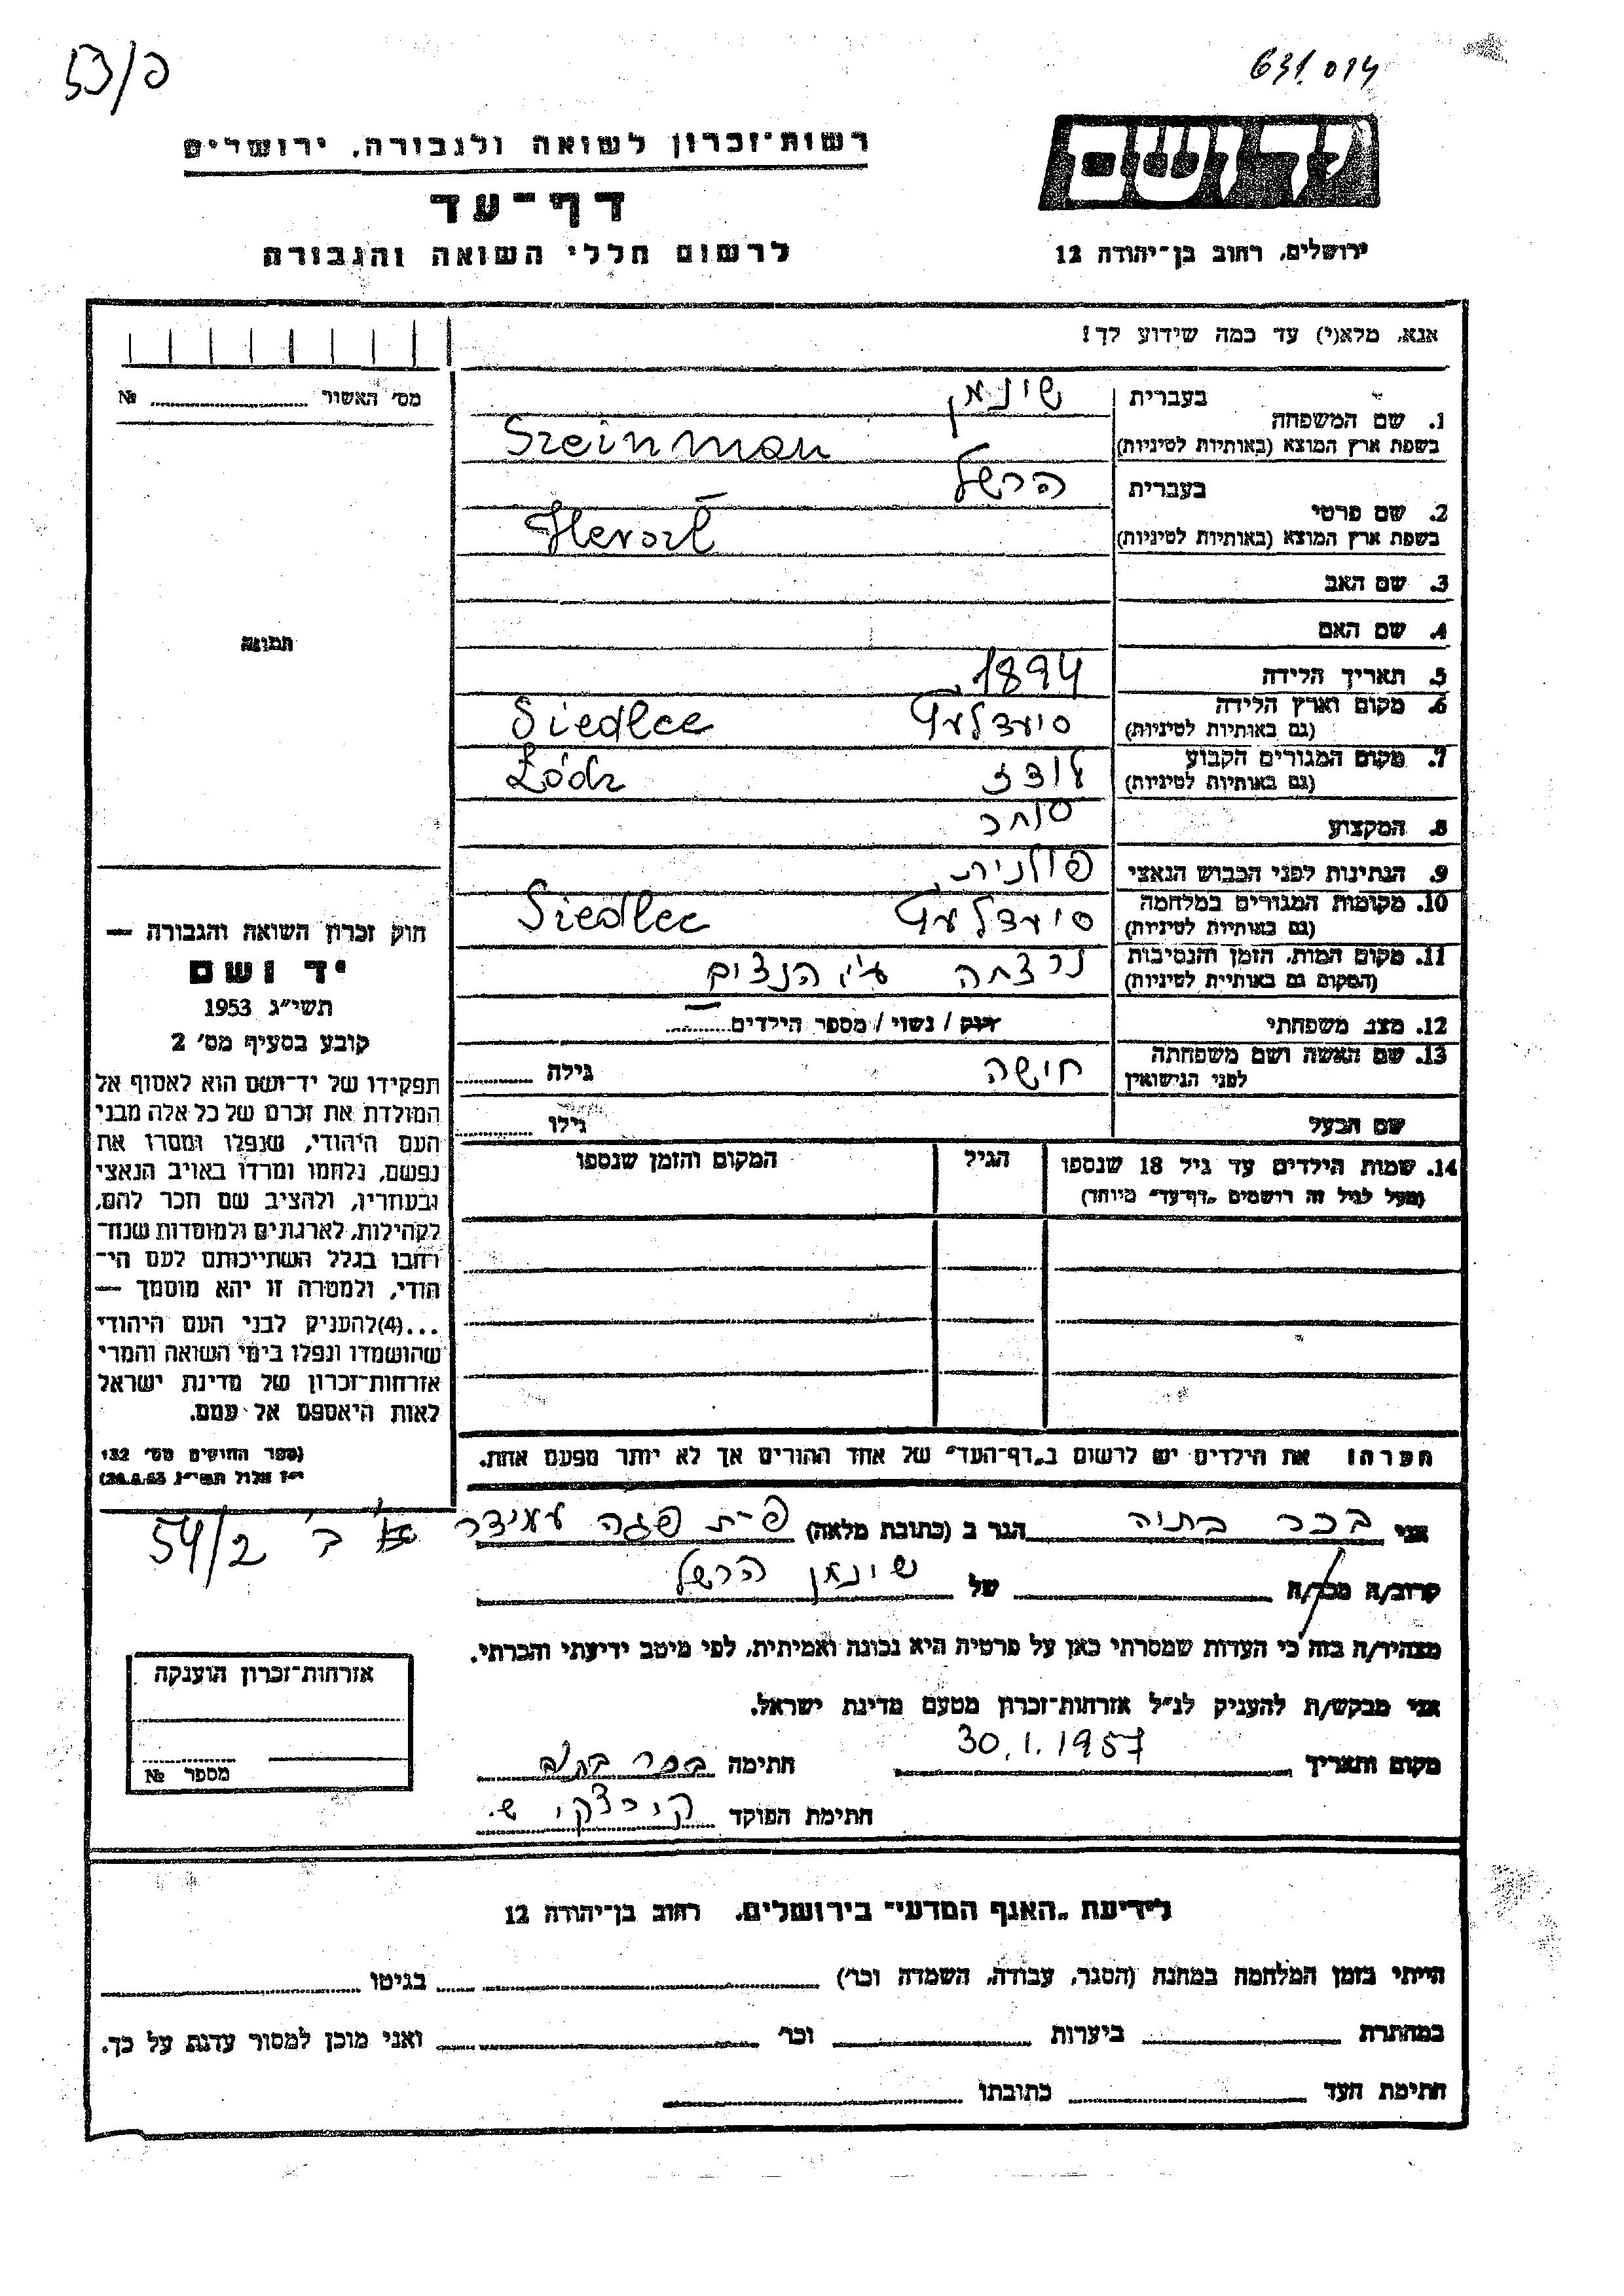 פ/53
631.014
ידושם
רשות־זכרון לשואה ולגבורה, ירושלים
דף־עד
לרשום חללי השואה והגבורה
ירושלים, רחוב בן־יהודה 12
אנא, מלא(י) עד כמה שידוע לך!
מס׳ האשור № 
תמונה
1. שם המשפחה: בעברית שינמן
בשפת ארץ המוצא (באותיות לטיניות) Szeinman
2. שם פרטי בעברית הרשל
בשפת ארץ המוצא (באותיות לטיניות) Herszl
3. שם האב
4. שם האם
5. תאריך הלידה 1894
6. מקום וארץ הלידה סיעדלעץ Siedlce
(גם באותיות לטיניות)
7. מקום המגורים הקבוע לודז Łódz
(גם באותיות לטיניות)
8. המקצוע סוחר
9. הנתינות לפני הכבוש הנאצי פולנית
10. מקומות המגורים במלחמה סיעדלעץ Siedlce
(גם באותיות לטיניות)
11. מקום המות, הזמן והנסיבות נרצחה ע״י הנצים
(המקום גם באותיות לטיניות)
12. מצב משפחתי רווק / נשוי / מספר הילדים
13. שם האשה ושם משפחתה חישה גילה
לפני הנישואין
שם הבעל גילו
14. שמות הילדים עד גיל 18 שנספו הגיל המקום והזמן שנספו
(מעל לגיל זה רושמים „דף־עד״ מיוחד)
חוק זכרון השואה והגבורה —
יד ושם
תשי״ג 1953
קובע בסעיף מס׳ 2
תפקידו של יד־ושם הוא לאסוף אל
המולדת את זכרם של כל אלה מבני
העם היהודי, שנפלו ומסרו את
נפשם, נלחמו ומרדו באויב הנאצי
ובעוזריו, ולהציב שם וזכר להם,
לקהילות, לארגונים ולמוסדות שנח־
רבו בגלל השתייכותם לעם הי־
הודי, ולמטרה זו יהא מוסמך —
...(4)להעניק לבני העם היהודי
שהושמדו ונפלו בימי השואה והמרי
אזרחות־זכרון של מדינת ישראל
לאות היאספם אל עמם.
(ספר החוקים מס׳ 132
י״ז אלול תשי״ג, 28.8.53)
הערה: את הילדים יש לרשום ב„דף־העד״ של אחד ההורים אך לא יותר מפעם אחת.
אני בכר בתיה הגר ב (כתובת מלאה) פ״ת פגה ב׳ 54/2
קרוב/ה מכר/ה של שינמן הרשל
מצהיר/ה בזה כי העדות שמסרתי כאן על פרטיה היא נכונה ואמיתית, לפי מיטב ידיעתי והכרתי.
אני מבקש/ת להעניק לנ״ל אזרחות־זכרון מטעם מדינת ישראל.
מקום ותאריך 30.1.1957 חתימה בכר בתיה
חתימת הפוקד ש.
אזרחות־זכרון הוענקה
מספר №
לידיעת „האגף המדעי״ בירושלים, רחוב בן־יהודה 12
הייתי בזמן המלחמה במחנה (הסגר, עבודה, השמדה וכר׳) בגיטו
במחתרת ביערות וכר׳ ואני מוכן למסור עדות על כך.
חתימת העד כתובתו